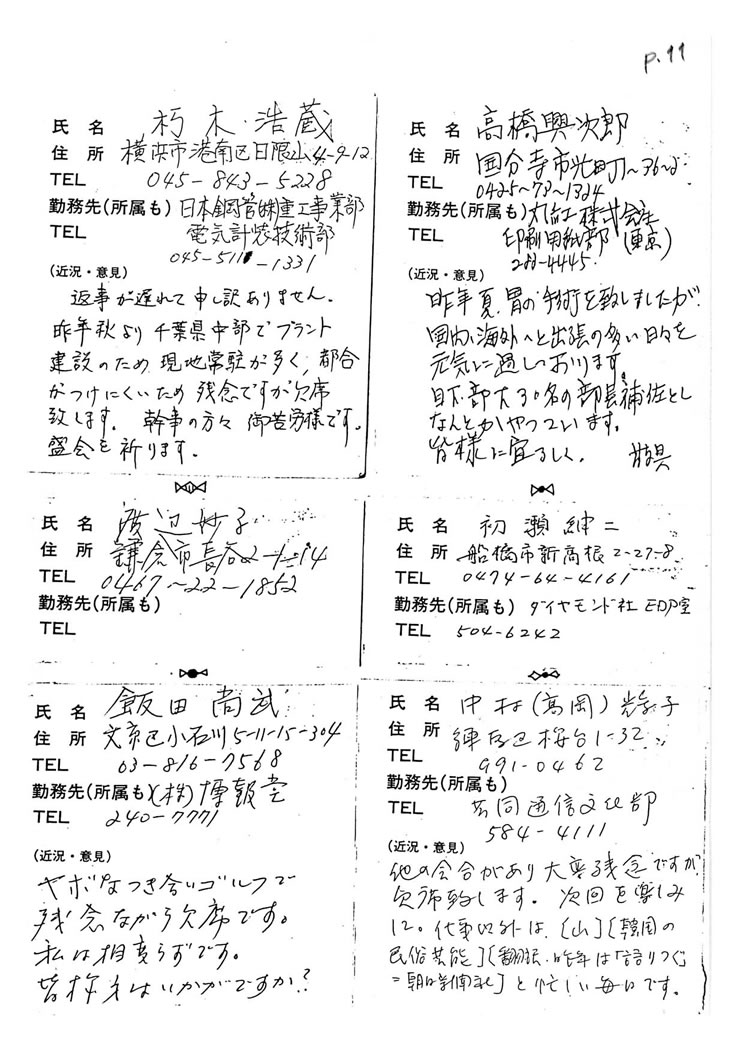 p.11
氏名 朽木浩蔵
住所 横浜市港南区日限山4-9-12
TEL 045-843-5228
勤務先(所属も) 日本鋼管(株)重工事業部
電気計装技術部
TEL 045-511-1331
(近況・意見)
返事が遅れて申し訳ありません。
昨年秋より千葉県中部でプラント
建設のため現地常駐が多く,都合
がつけにくいため残念ですが欠席
致します。幹事の方々御苦労様です。
盛会を祈ります。
氏名 高橋興次郎
住所 国分寺市光町1~36~2
TEL 0425~73~1324
勤務先(所属も) 丸紅株式会社
印刷用紙部(東京)
TEL 282-4445
(近況・意見)
昨年夏、胃の手術を致しましたが
国内、海外へと出張の多い日々を
元気に過しおります。
目下.部大30名の部長補佐とし
なんとかやっています。
皆様に宜るしく。 敬具
氏名 渡辺妙子
住所 鎌倉市長谷2-1-14
TEL 0467~22-1852
勤務先(所属も)
TEL
氏名 初瀬紳二
住所 船橋市新高根2-27-8
TEL 0474-64-4161
勤務先(所属も) ダイヤモンド社 EDP室
TEL 504-6242
氏名 飯田尚武
住所 文京区小石川5-11-15-304
TEL 03-816-7568
勤務先(所属も) (株)博報堂
TEL 240-7771
(近況・意見)
ヤボなつき合いゴルフで
残念ながら欠席です。
私は相変らずです。
皆様方はいかがですか?
氏名 中村(高岡)光子
住所 練馬区桜台1-32
TEL 991-0462
勤務先(所属も) 共同通信文化部
TEL 584-4111
(近況・意見)
他の会合があり大変残念ですが
欠席致します。次回を楽しみ
に。仕事以外は、[山][韓国の
民俗芸能][翻訳・昨年は「語りつぐ」
=朝日新聞社]と忙しい毎日です。